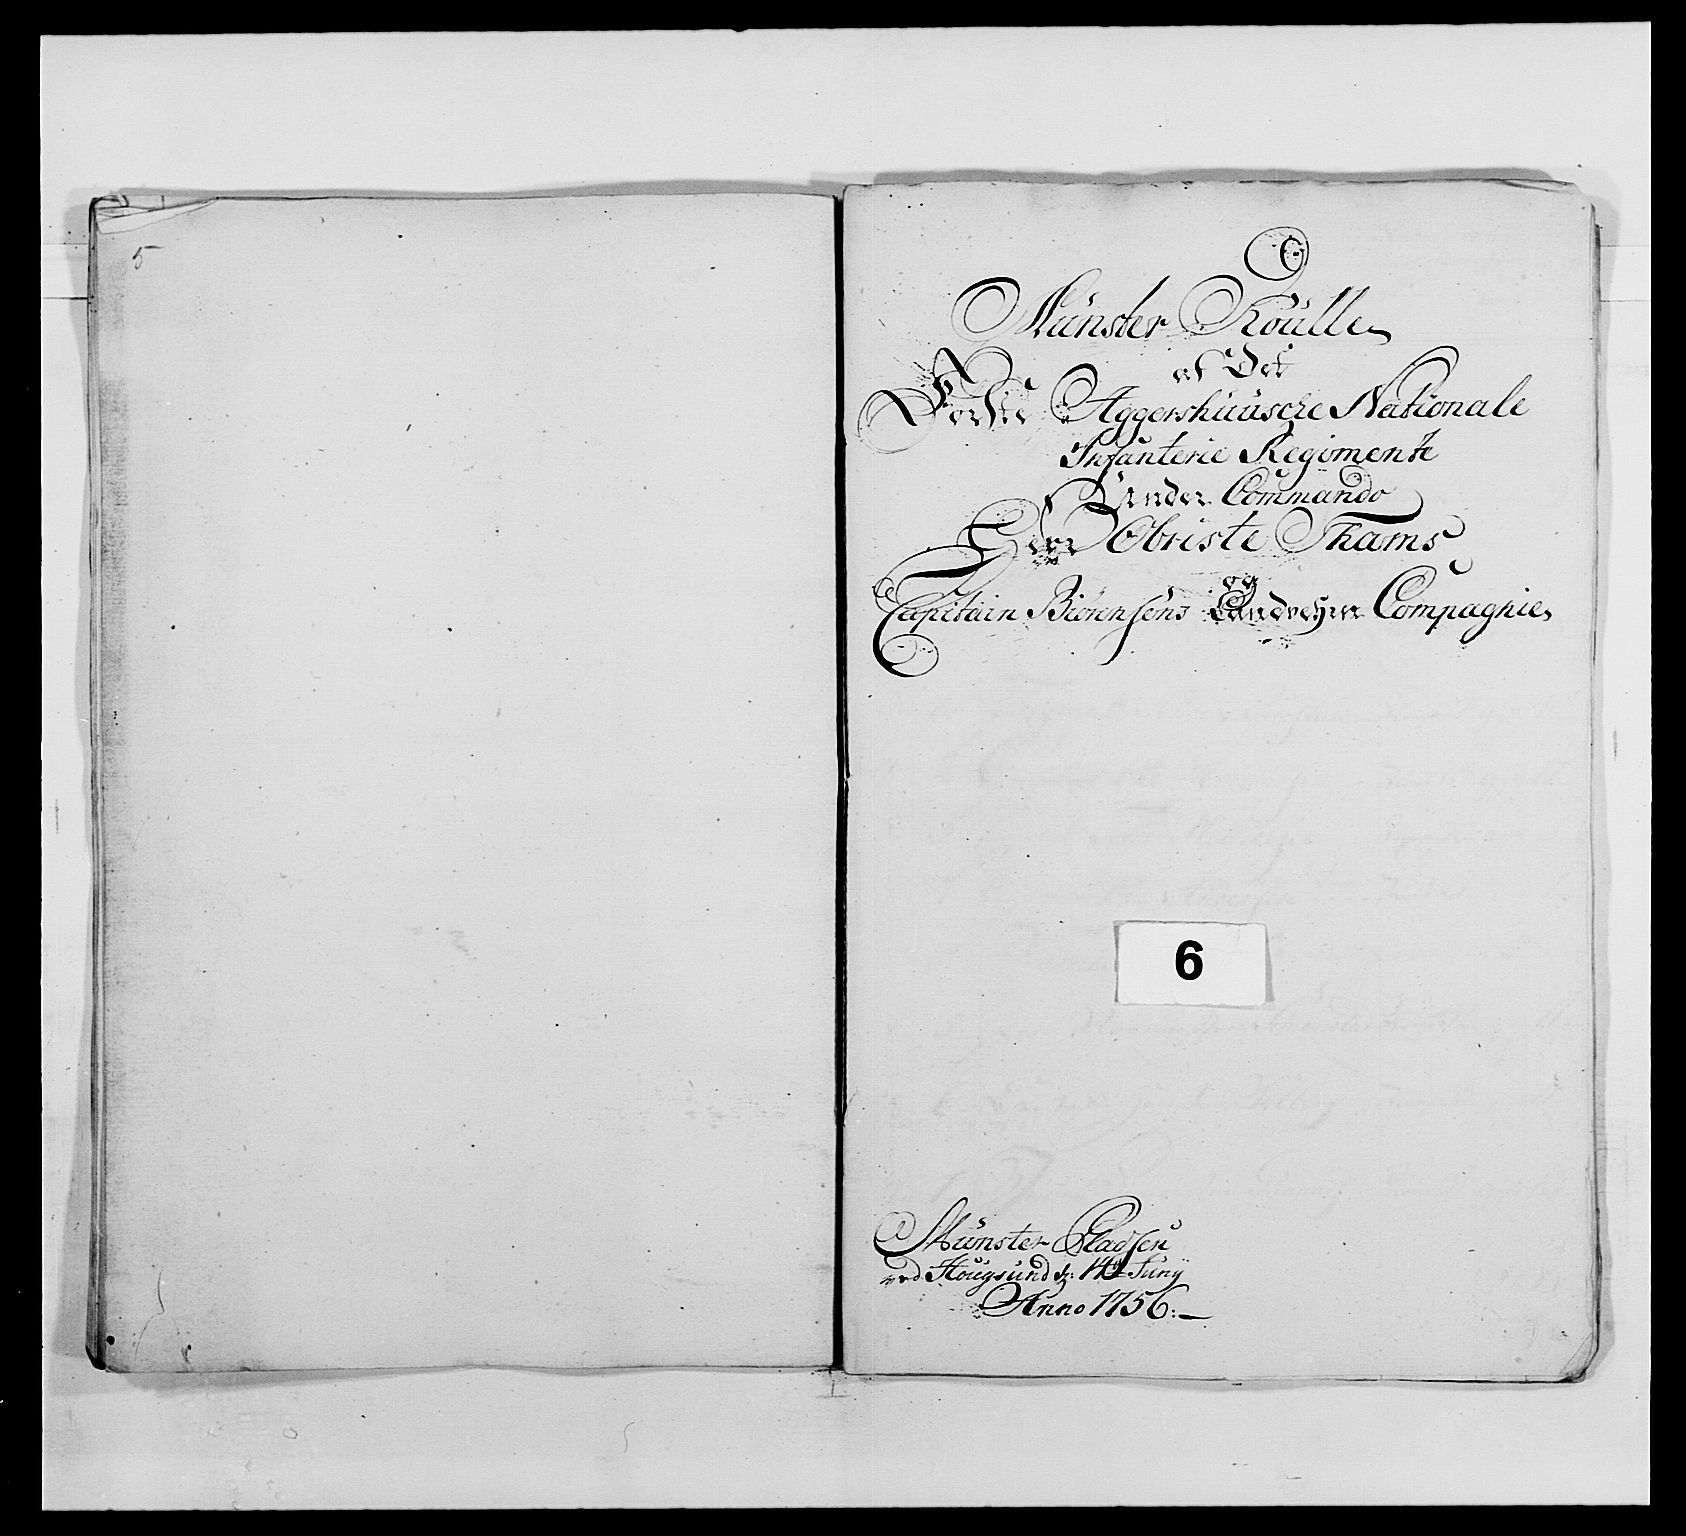 5
Münster Roülle
af Det
Første Aggershüüsche Nationale
Infanterie Regimente
Under Commando
Herr Obriste Thams
og
Capitain Biörensens Landvehrn Compagnie
6
Münster Pladsen
ved Hougsund d: 14de Junij
Anno 1756: